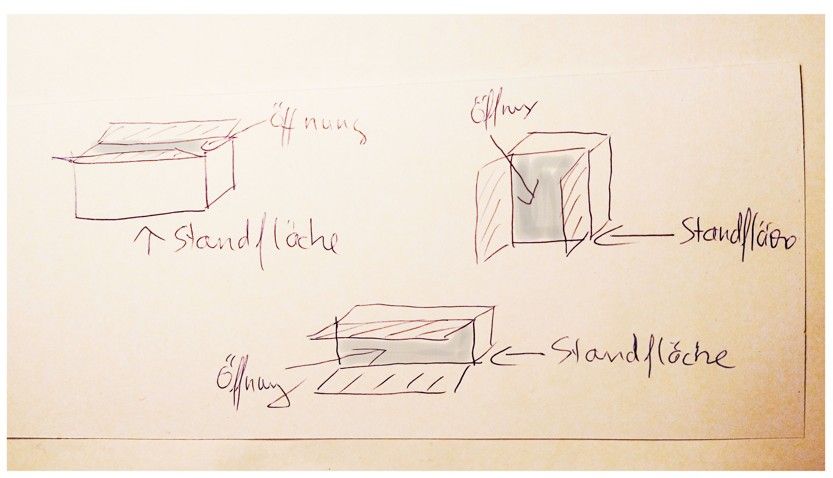 Öffnung
Öffnung
Standfläche
Standfläche
Standfläche
Öffnung